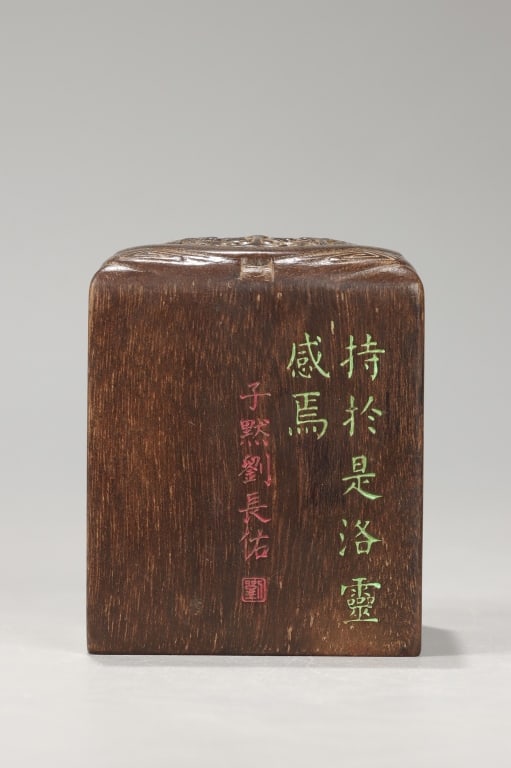 持於是洛靈
感焉
子默劉長佑
劉